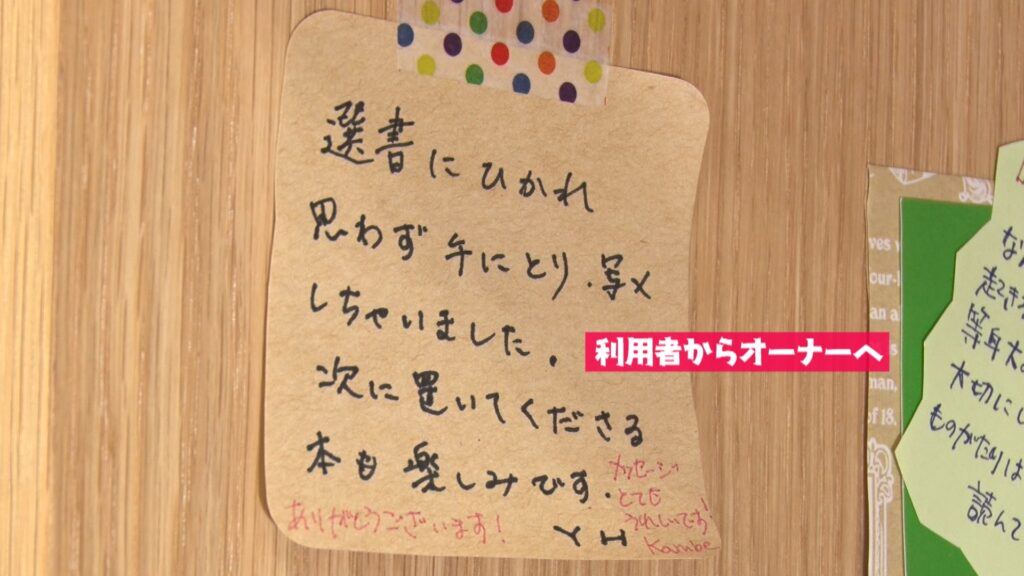 選書にひかれ
思わず手にとり、写メ
しちゃいました。
次に置いてくださる
本も楽しみです.
Y H
メッセージ
とても
うれしいです!
Kambe
ありがとうございます!
利用者からオーナーへ
ves
our-
an a
man,
of 18.
起き

等身大
大切にし
ものがたりは
読んで